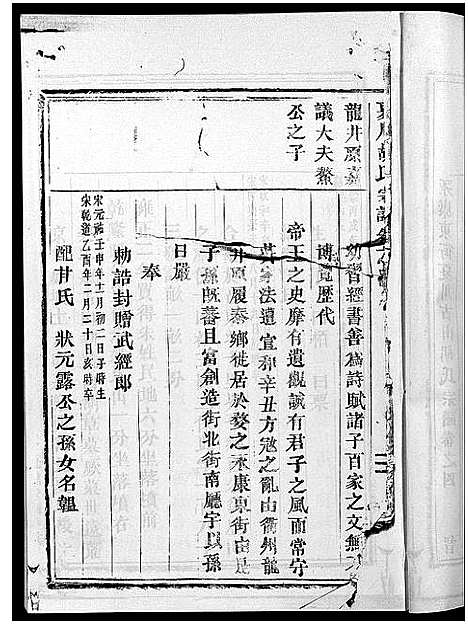 龍井原嘉
議大夫鰲
公之子
幼習經書善爲詩賦諸子百家之文無
博覽歷代
帝王之史靡有遺觀誠有君子之風而常守
家法遭宣和辛丑方冦之亂由衢州龍
井原履泰鄉徙居於婺之永康東街由是
子孫既蕃且富創造街北街南廳宇以孫
日嚴
奉
勅誥封贈武經郎
宋元祐壬申年十一月初二日子時生
宋乾道乙酉年二月二十日亥時卒
配甘氏 狀元露公之孫女名韞